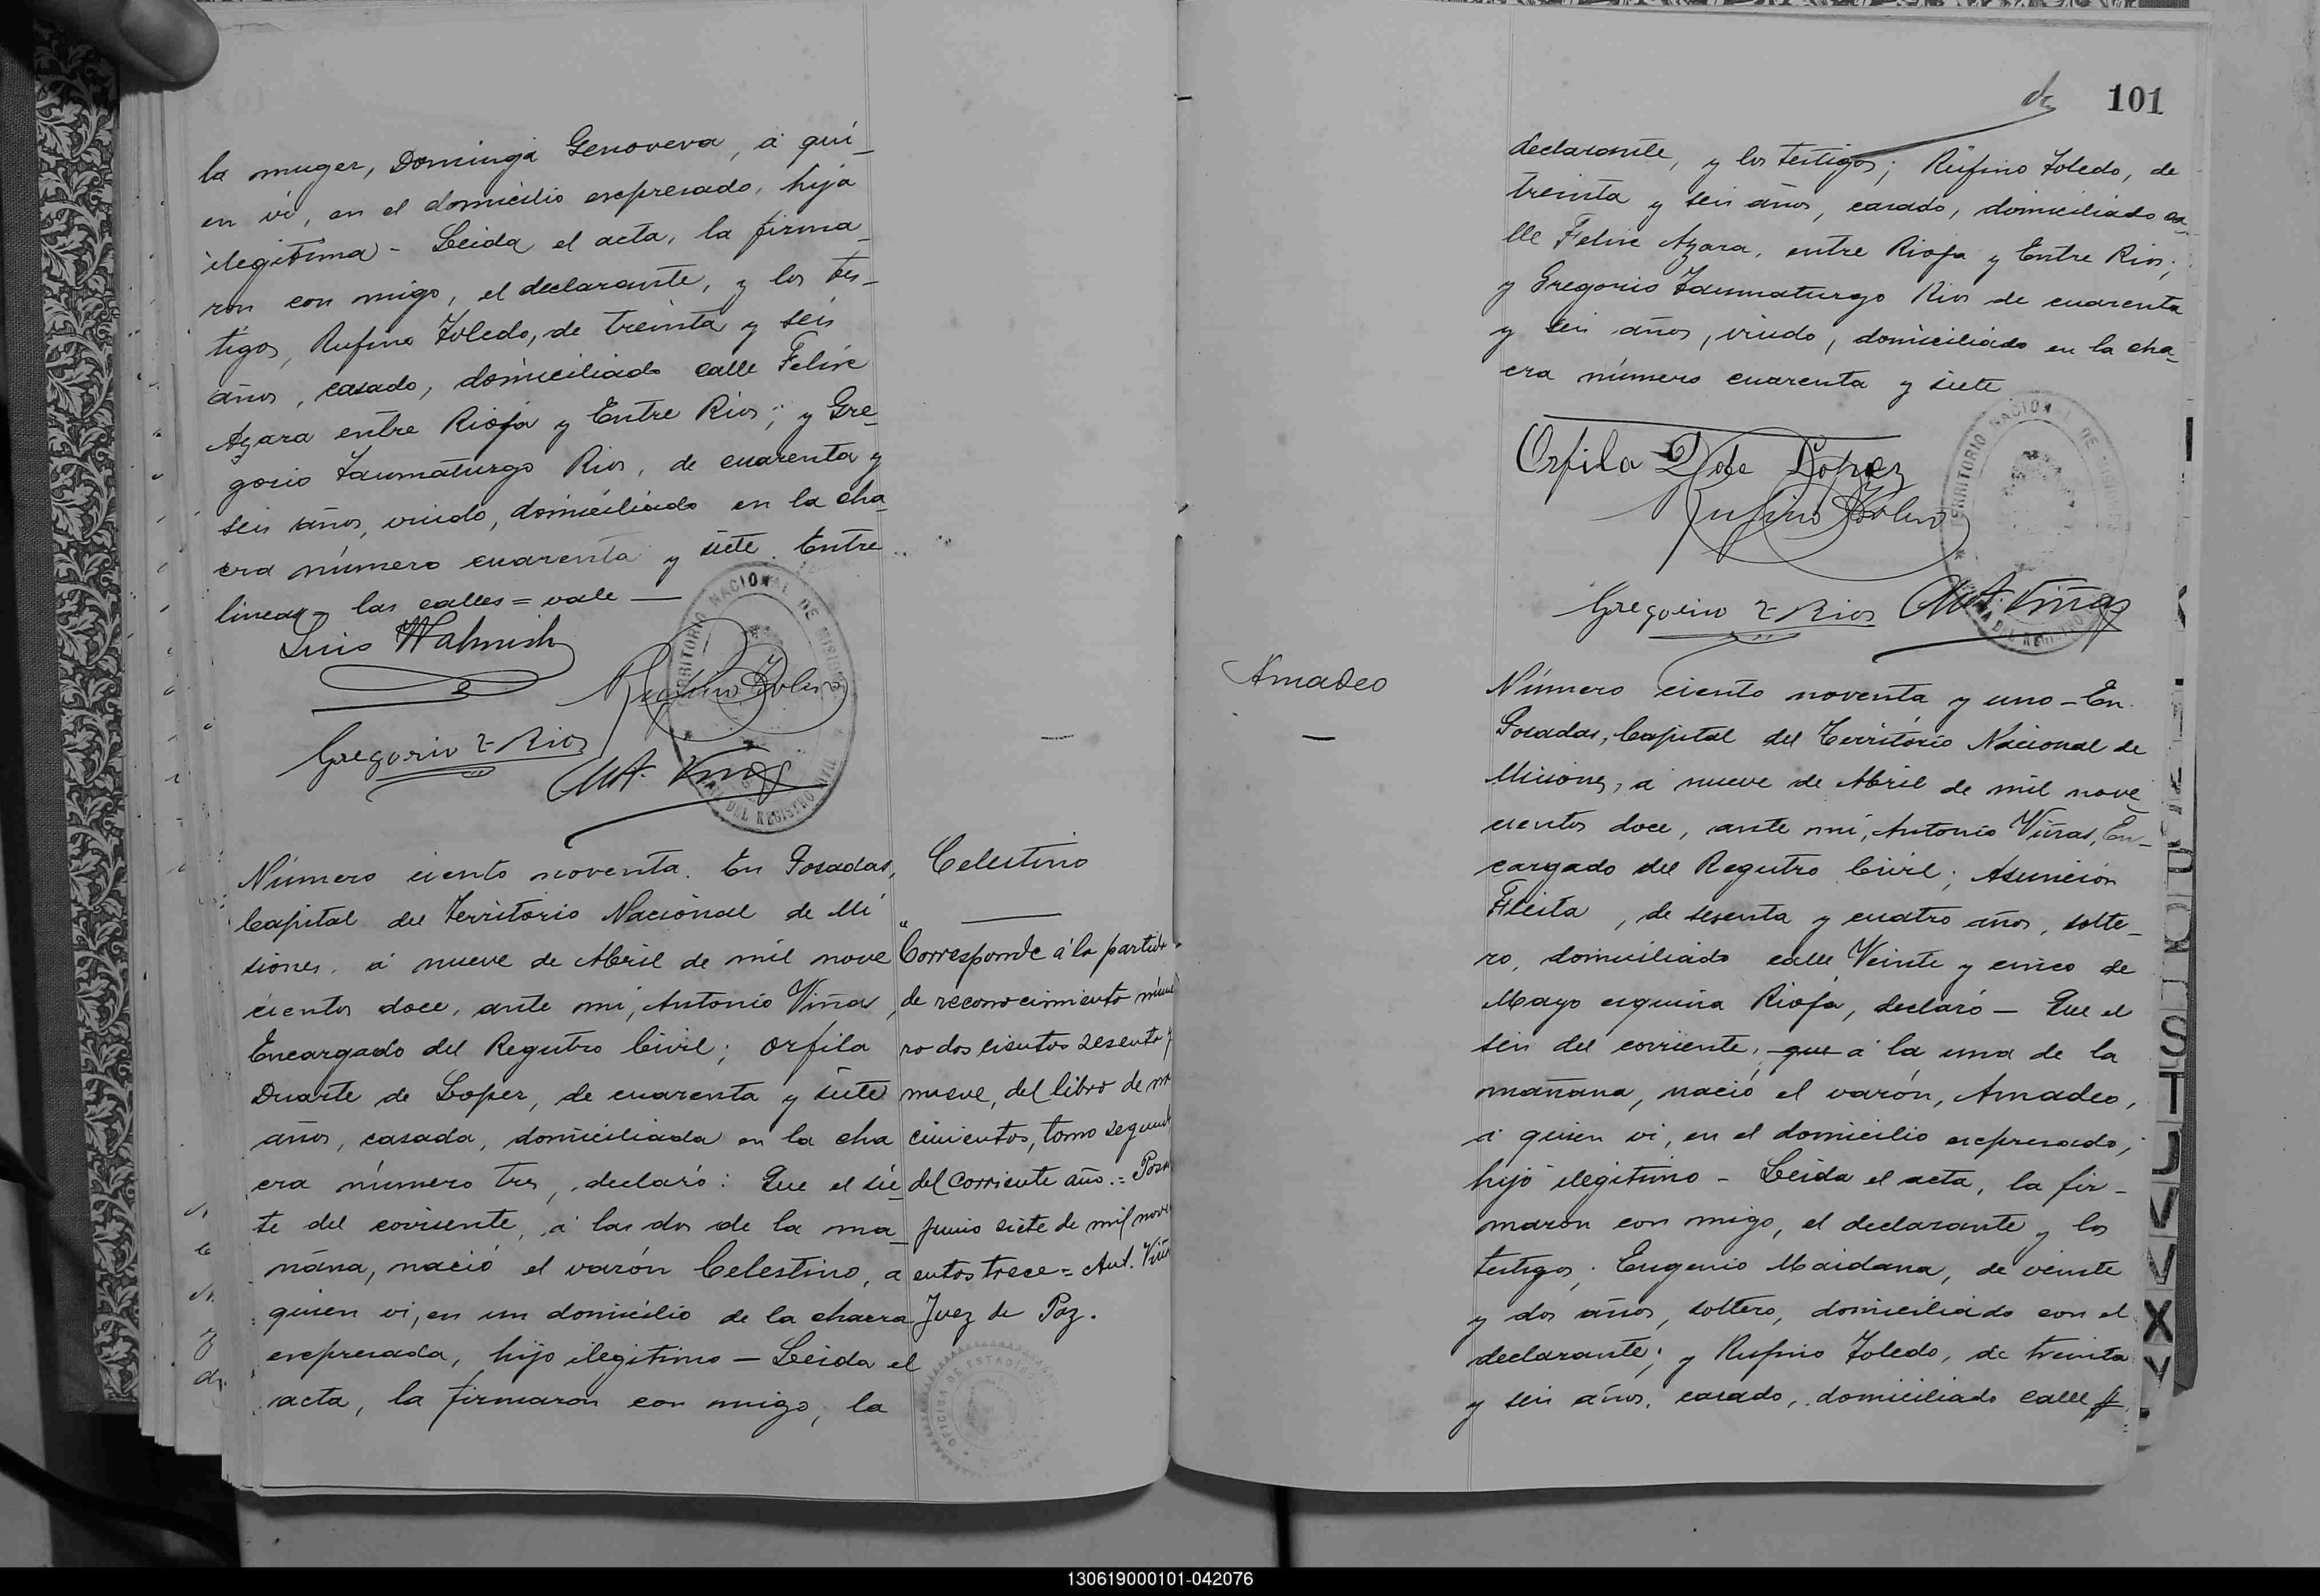 la muger, Dominga Genoveva, á qui_
en ví, en el domicilio espresado, hija
ilegitima - Leida el acta, la firma_
ron con migo, el declarante, y los tes_
tigos, Rufino Toledo, de treinta y seis
años, casado, domiciliado calle Felix
Azara entre Rioja y Entre Rios; y Gre_
gorio Taumaturgo Rios, de cuarenta y
seis años, viudo, domiciliado en la cha_
cra número cuarenta y siete. Entre
lineas, las calles = vale —
Luis Walmish
Rufino Toledo
Gregorio T Rios
Ant. Viñas
TERRITORIO NACIONAL DE MISIONES
DEL REGISTRO CIVIL
Número ciento noventa. En Posadas,
Capital del Territorio Nacional de Mi
siones, á nueve de Abril de mil nove
cientos doce, ante mi, Antonio Viñas,
Encargado del Registro Civil; Orfila
Duarte de Lopez, de cuarenta y siete
años, casada, domiciliada en la cha
cra número tres, declaró: Que el sie_
te del corriente, á las dos de la ma_
ñana, nació el varón Celestino, a
quien vi, en un domicilio de la chacra
espresada, hijo ilegitimo — Leida el
acta, la firmaron con migo, la
Celestino
"Corresponde á la partida
de reconocimiento núme
ro dos cientos sesenta y
nueve, del libro de na
cimientos, tomo segundo
del corriente año.= Posa
Junio siete de mil novi
entos trece = Ant. Viñ
Juez de Paz.
OFICINA DE ESTADI
101
declarante, y los testigos; Rufino Toledo, de
treinta y seis años, casado, domiciliado ca_
lle Felix Azara, entre Rioja y Entre Rios;
y Gregorio Taumaturgo Rios de cuarenta
y seis años, viudo, domiciliado en la cha_
cra número cuarenta y siete
Orfila D de Lopez
Rufino Toledo
Gregorio T Rios
Ant. Viñas
TERRITORIO NACIONAL DE MISIONES
DEL REGISTRO
Amadeo
Número ciento noventa y uno - En
Posadas, Capital del Territorio Nacional de
Misiones, á nueve de Abril de mil nove_
cientos doce, ante mi, Antonio Viñas, En_
cargado del Registro Civil; Asunción
Fleita, de sesenta y cuatro años, solte_
ro, domiciliado calle Veinte y cinco de
Mayo esquina Rioja, declaró — Que el
seis del corriente, que á la una de la
mañana, nació el varón, Amadeo,
á quien vi, en el domicilio espresado,
hijo ilegitimo - Leida el acta, la fir_
maron con migo, el declarante y los
testigos; Eugenio Maidana, de veinte
y dos años, soltero, domiciliado con el
declarante; y Rufino Toledo, de treinta
y seis años, casado, domiciliado calle
130619000101-042076